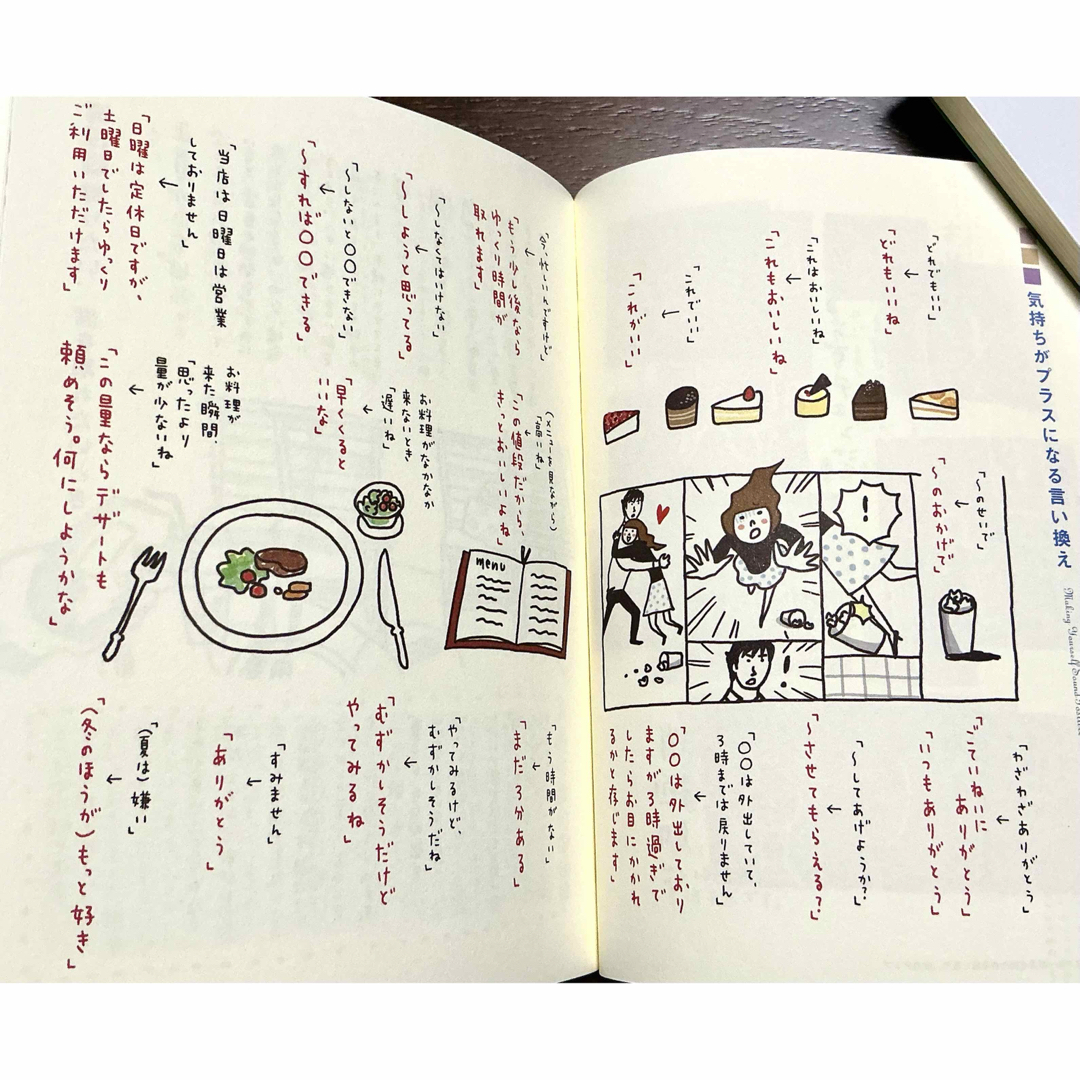 気持ちがプラスになる言い換え
Making Yourself Sound
「どれでもいい」
↓
「どれもいいね」
「これはおいしいね」
↓
「これもおいしいね」
「これでいい」
↓
「これがいい」
「〜のせいで」
↓
「〜のおかげで」
!
!
「わざわざありがとう」
↓
「ごていねいに
ありがとう」
「いつもありがとう」
「〜してあげようか?」
↓
「〜させてもらえる?」
「〇〇は外出していて、
3時までは戻りません」
↓
「〇〇は外出しており
ますが3時過ぎで
したらお目にかかれ
るかと存じます」
「今、忙しいんですけど」
↓
「もう少し後なら
ゆっくり時間が
取れます」
「〜しなくてはいけない」
↓
「〜しようと思ってる」
「〜しないと〇〇できない」
↓
「〜すれば〇〇できる」
「当店は日曜日は営業
しておりません」
↓
「日曜は定休日ですが、
土曜日でしたらゆっくり
ご利用いただけます」
(メニューを見ながら)
「高いね」
↓
「この値段だから、
きっとおいしいよね」
お料理がなかなか
来ないとき
「遅いね」
↓
「早くくると
いいな」
お料理が
来た瞬間、
「思ったより
量が少ないね」
↓
「この量ならデザートも
頼めそう。何にしようかな」
menu
「もう時間がない」
↓
「まだ3分ある」
「やってみるけど、
むずかしそうだね」
↓
「むずかしそうだけど
やってみるね」
「すみません」
↓
「ありがとう」
「(夏は)嫌い」
↓
「(冬のほうが)もっと好き」